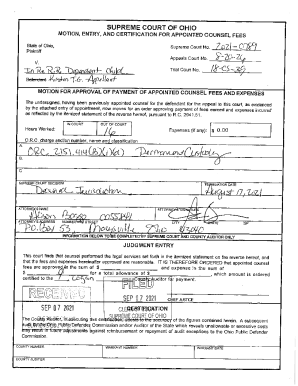 SUPREME COURT OF OHIO
MOTION, ENTRY, AND CERTIFICATION FOR APPOINTED COUNSEL FEES
State of Ohio,
Plaintiff
v.
In Re R.R. Dependent Child
Kristin T.G. Appellant
Supreme Court No. 2021-0789
Appeals Court No. 8-20-26
Trial Court No. 18-CS-39
MOTION FOR APPROVAL OF PAYMENT OF APPOINTED COUNSEL FEES AND EXPENSES
The undersigned, having been previously appointed counsel for the defendant for the appeal to this court, as evidenced
by the attached entry of appointment, now moves for an order approving payment of fees owned and expenses incurred
as reflected by the itemized statement of the reverse hereof, pursuant to R.C. 2941.51.
IN COURT
OUT OF COURT
Hours Worked:
16
Expenses (if any): $ 0.00
O.R.C. charge section number, name and classification
A. ORC 2151.414(B)(1)(d) Permanent Custody
B.
C.
SUPREME COURT DECISION
Declined Jurisdiction
TERMINATION DATE
August 17, 2021
Alison Boggs 0055841
CITY
PO Box 53 Marysville Ohio 43040
INFORMATION BELOW TO BE COMPLETED BY SUPREME COURT AND COUNTY AUDITOR ONLY
JUDGMENT ENTRY
This court finds that counsel performed the legal services set forth in the itemized statement on the reverse hereof, and
that the fees and expenses hereinafter approved are reasonable. IT IS THEREFORE ORDERED that appointed counsel
fees are approved in the sum of $ and expense in the sum of
$ for a total allowance of $ which amount is ordered
certified to the Logan Auditor for payment.
RECEIVED
FILED
SEP 07 2021
SEP 17 2021
CHIEF JUSTICE
CERTIFICATION
SUPREME COURT OF OHIO
The County Auditor, in executing this certification, attests to the accuracy of the figures contained herein. A subsequent
audit by the Ohio Public Defender Commission and/or Auditor of the State which reveals unallowable or excessive costs
may result in future adjustments against reimbursement or repayment of audit exceptions to the Ohio Public Defender
Commission.
COUNTY NUMBER
WARRANT NUMBER
WARRANT DATE
COUNTY AUDITOR